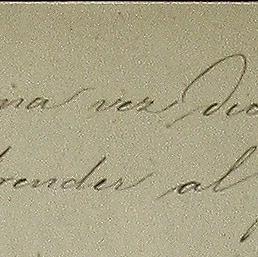 una vez dio
prender al